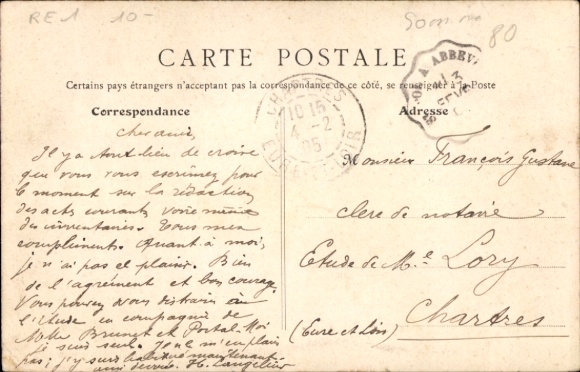 RE1 10-
80
CARTE POSTALE
Certains pays étrangers n'acceptant pas la correspondance de ce côté, se renseigner à la Poste
Correspondance
Adresse
CHARTRES
10 15
4 - 2
05
EURE-ET-LOIR
A ABBEV
Cher ami,
Il y a tout lieu de croire
que vous vous escrimez pour
le moment sur la rédaction
des actes courants voire même
des inventaires. Tous mes
compliments. Quant à moi,
je n'ai pas ce plaisir. Bien
de l'agrément et bon courage.
Vous pouvez vous distraire à
l'étude en compagnie de
MMs Brunet et Portal. Moi
je suis seul. Je ne m'en plain
pas; j'y suis habitué maintenant
ami H. Langelier
Monsieur François Gustave
clerc de notaire
Etude de Me Lory
Chartres
(Eure et Loir)